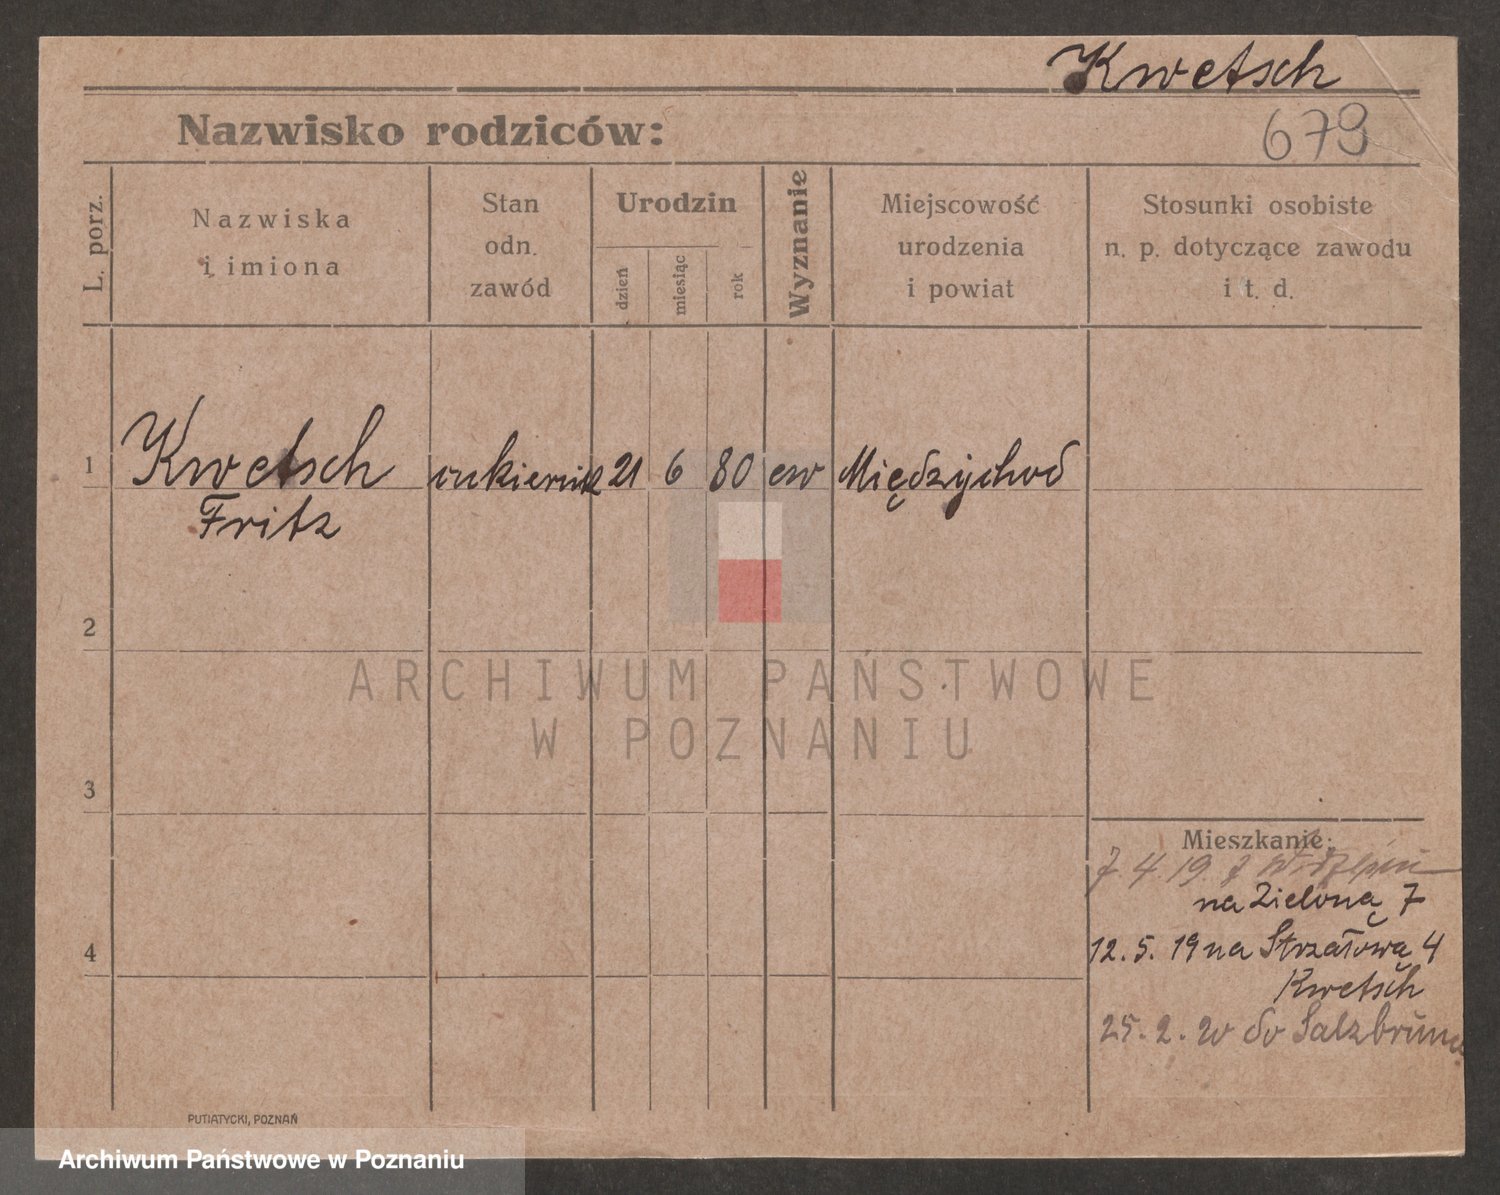 Kwetsch
Nazwisko rodziców:
679
L. porz.
Nazwiska
i imiona
Stan
odn.
zawód
Urodzin
dzień
miesiąc
rok
Wyznanie
Miejscowość
urodzenia
i powiat
Stosunki osobiste
n. p. dotyczące zawodu
i t. d.
1 Kwetsch cukiernik 21 6 80 ew Międzychod
Fritz
2
ARCHIWUM PAŃSTWOWE
W POZNANIU
3
Mieszkanie:
7 4 19 z
na Zieloną 7
4
12. 5. 19 na Strzałową 4
Kwetsch
25. 2. 20 do Salzbrunn
PUTIATYCKI, POZNAŃ
Archiwum Państwowe w Poznaniu